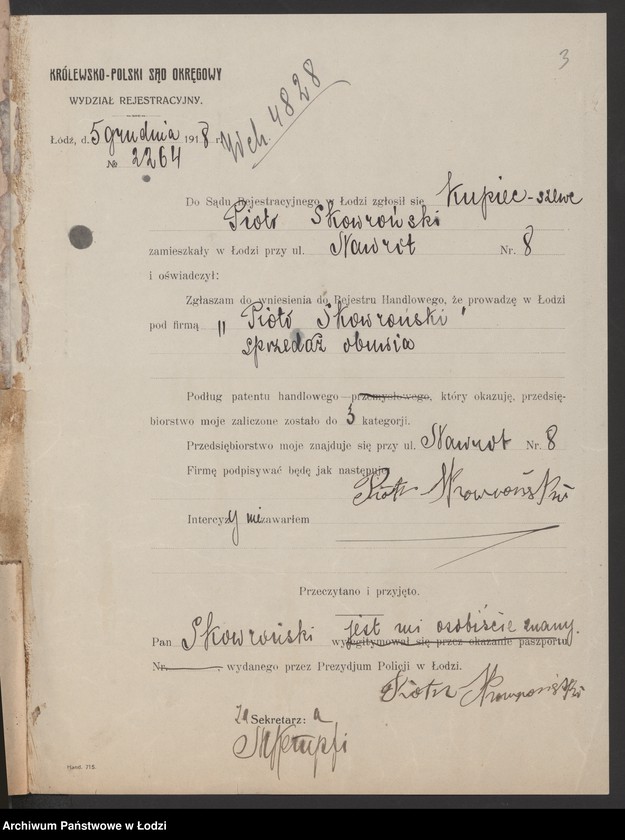 3
KRÓLEWSKO-POLSKI SĄD OKRĘGOWY
WYDZIAŁ REJESTRACYJNY.
Wch. 4828
Łódź, d. 5 grudnia 1918 r.
№ 2264
Do Sądu Rejestracyjnego w Łodzi zgłosił się Kupiec-szewc
Piotr Skowroński
zamieszkały w Łodzi przy ul. Nawrot Nr. 8
i oświadczył:
Zgłaszam do wniesienia do Rejestru Handlowego, że prowadzę w Łodzi
pod firmą „Piotr Skowroński"
sprzedaż obuwia
Podług patentu handlowego przemysłowego, który okazuję, przedsię-
biorstwo moje zaliczone zostało do 3 kategorji.
Przedsiębiorstwo moje znajduje się przy ul. Nawrot Nr. 8
Firmę podpisywać będę jak następuje
Piotr Skowroński
Intercyzy nie zawarłem
Przeczytano i przyjęto.
jest mi osobiście znany.
Pan Skowroński wylegitymował się przez okazanie paszportu
Nr. wydanego przez Prezydjum Policji w Łodzi.
Piotr Skowroński
Za Sekretarz: a
Hand. 715.
Archiwum Państwowe w Łodzi